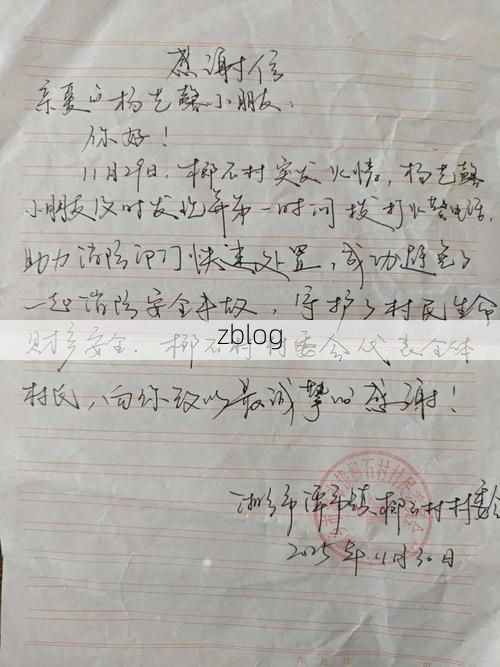 感谢信
亲爱的杨艺馨小朋友：
你好！
11月29日，椰石村突发火情，杨艺馨
小朋友及时发现并第一时间拨打火警电话，
助力消防部门快速处置，成功避免了
一起消防安全事故，守护了村民生命
zblog
财产安全。椰石村村委会代表全体
村民，向你致以最诚挚的感谢！
湘乡市潭市镇椰石村村委会
2025年11月30日
年 月 日